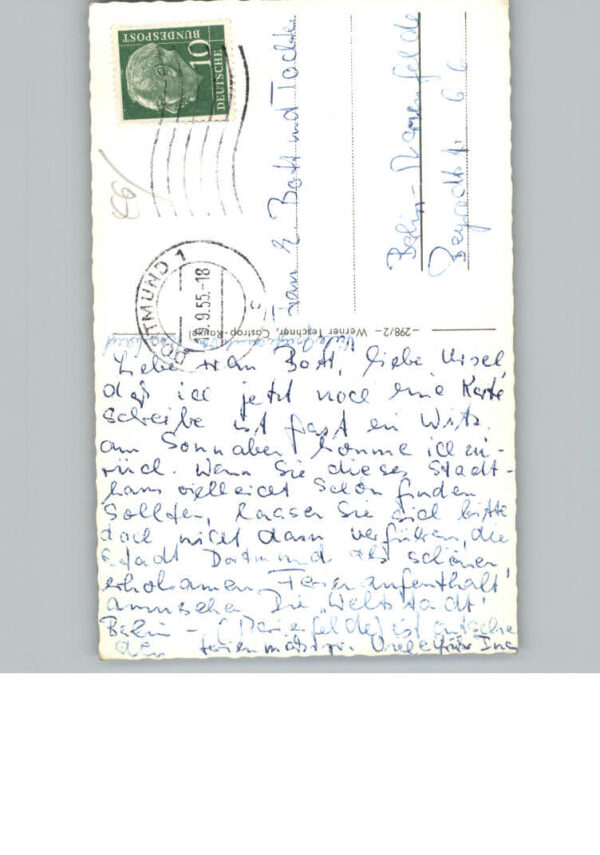 Liebe Frau Bott, liebe Ursel,
daß ich jetzt noch eine Karte
schreibe ist fast ein Witz.
Am Sonnabend komme ich zu-
rück. Wenn Sie dieses Stadt-
haus vielleicht schön finden
sollten, lassen Sie sich bitte
doch nicht dazu verführen, die
Stadt Dortmund als schönen,
erholsamen Ferienaufenthalt
anzusehen. Die "Weltstadt"
Berlin - (Marienfelde) ist entschie
den ferienmäßiger. Viele Grüße Ihre
Viele Grüße
298/2 – Werner Teschner, Castrop-Rauxel
DEUTSCHE
BUNDESPOST
10
DORTMUND 1
9.55.-18
c
Frau E. Bott und Tochter
Berlin-Marienfelde
66